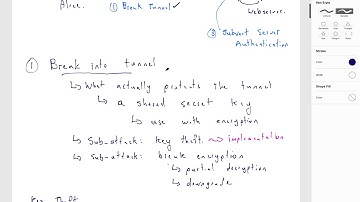 Alice.
① Break Tunnel
Webserver.
③ Subvert Server
Authentication
① Break into tunnel.
↳ What actually protects the tunnel
↳ a shared secret key
↳ use with encryption
↳ Sub-attack: key theft. ⇝ implementation
↳ Sub-attack: break encryption
↳ partial decryption
↳ downgrade
Key Theft
Pen Style
Stroke
Shape Fill